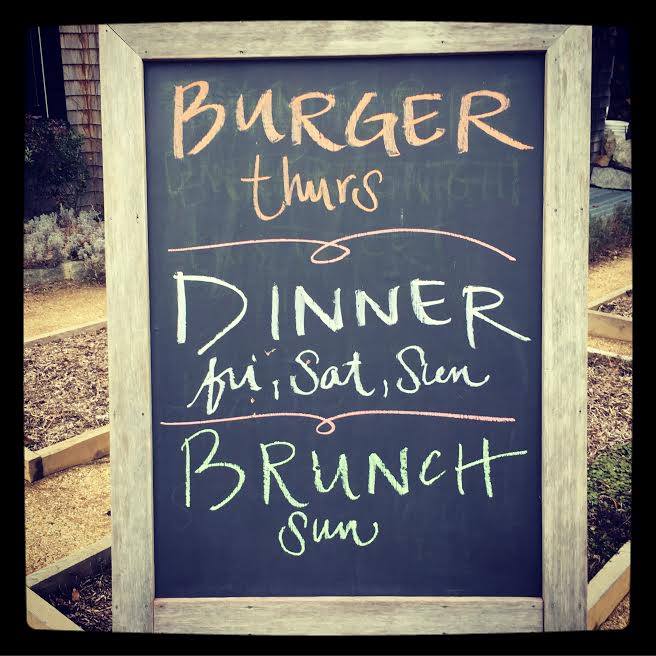 BURGER
thurs
DINNER
fri, Sat, Sun
BRUNCH
Sun